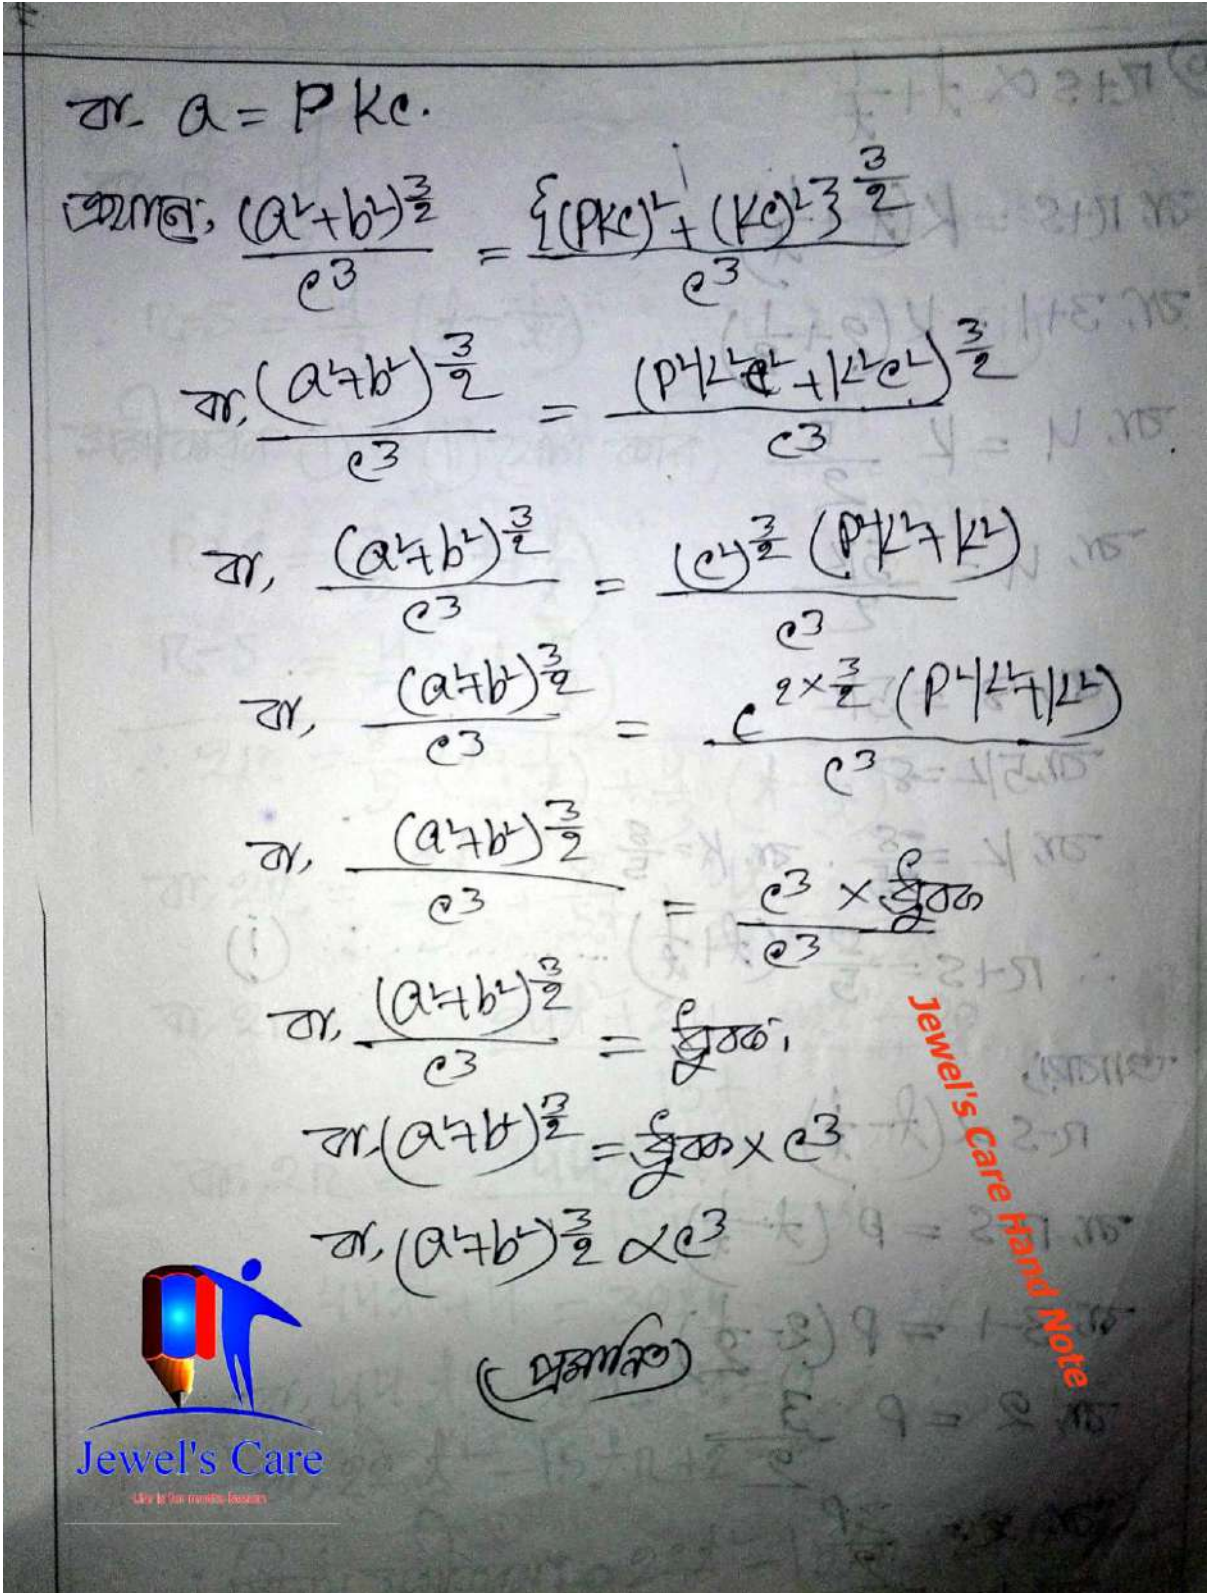 বা, a = PKc.
এখানে, (a²+b²)^{3/2} / c³ = {(PKc)²+(Kc)²}^{3/2} / c³
বা, (a²+b²)^{3/2} / c³ = (P²K²c²+K²c²)^{3/2} / c³
বা, (a²+b²)^{3/2} / c³ = (c²)^{3/2} (P²K²+K²) / c³
বা, (a²+b²)^{3/2} / c³ = c^{2×3/2} (P²K²+K²) / c³
বা, (a²+b²)^{3/2} / c³ = c³ × ধ্রুবক / c³
বা, (a²+b²)^{3/2} / c³ = ধ্রুবক।
বা, (a²+b²)^{3/2} = ধ্রুবক × c³
বা, (a²+b²)^{3/2} ∝ c³
(প্রমানিত)
Jewel's Care Hand Note
Jewel's Care